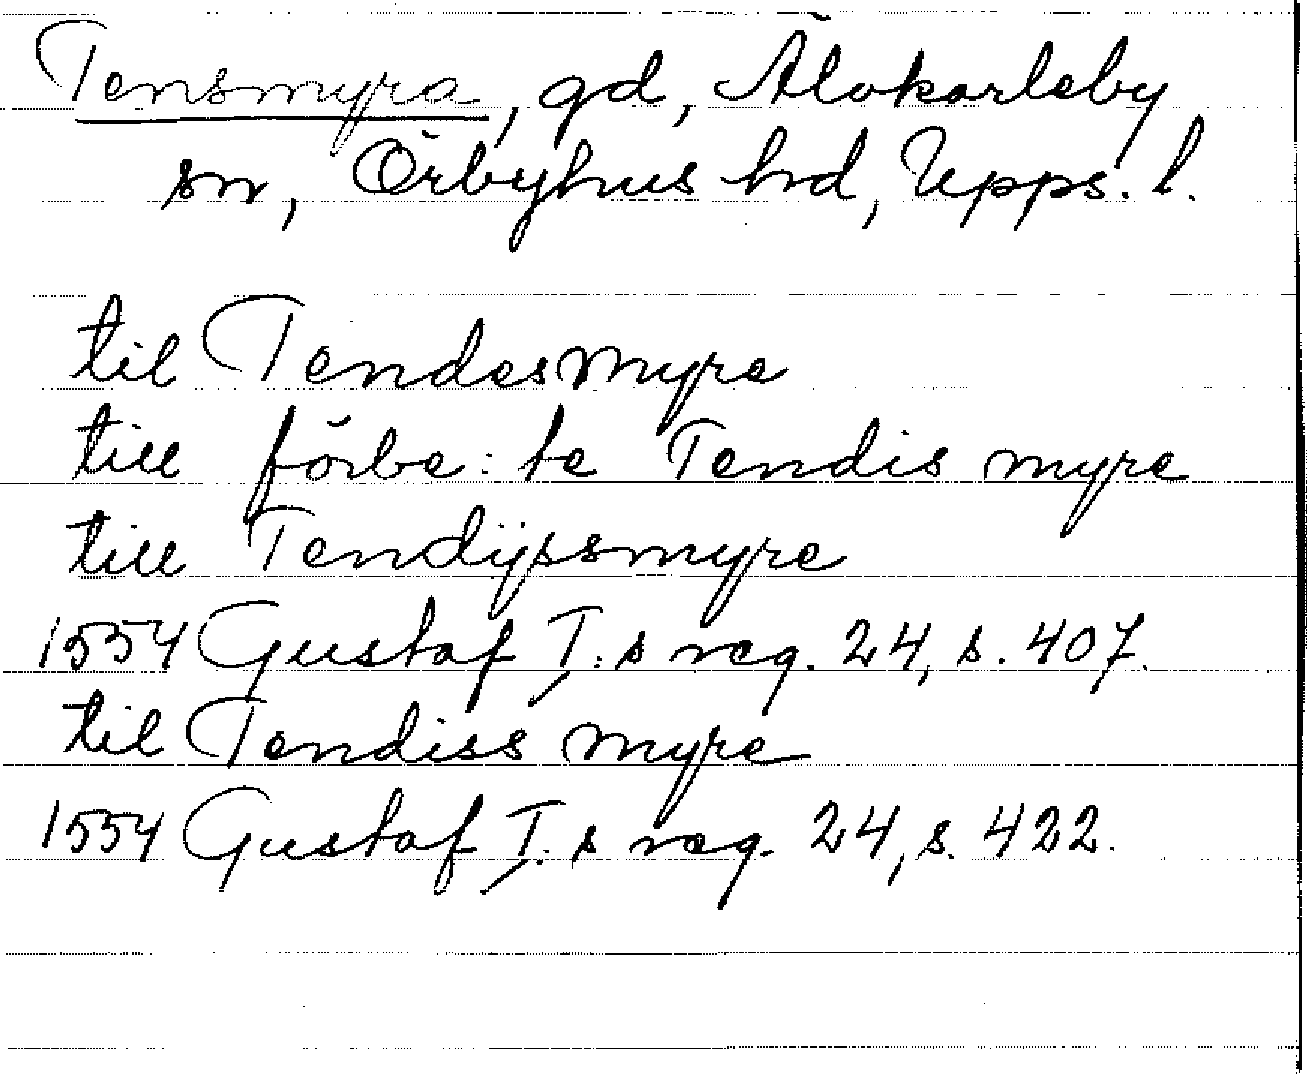 Tensmyra, gd, Älvkarleby
sn, Örbyhus hd, Upps. l.
til Tendesmyre
till förbe: te Tendis myre
till Tendijssmyre
1554 Gustaf I:s reg. 24, s. 407.
til Tendiss myre
1554 Gustaf I:s reg. 24, s. 422.